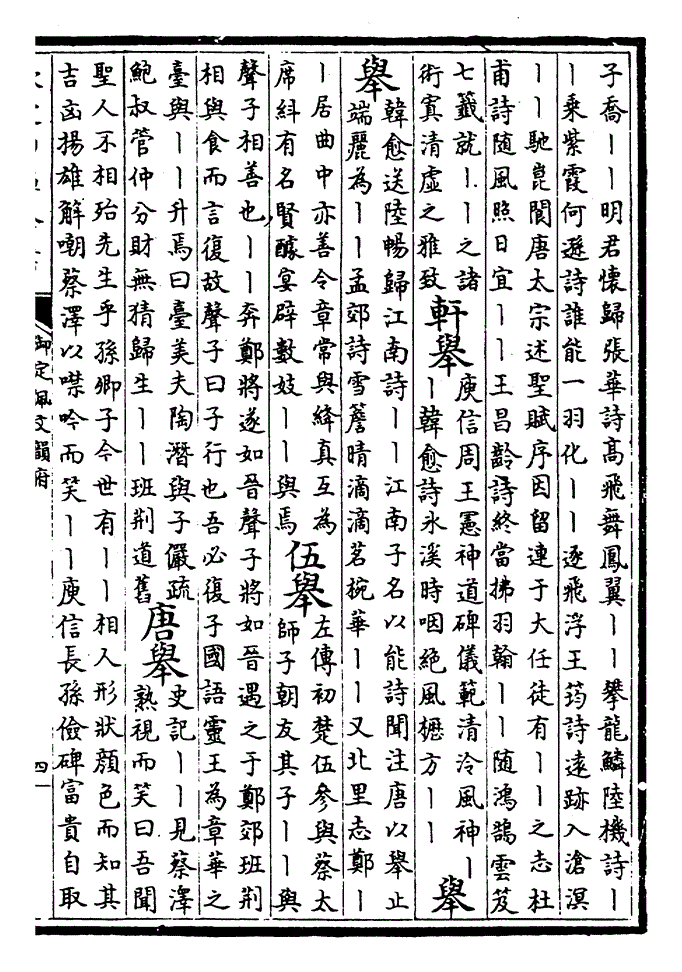 子喬丨丨明君懷歸張華詩高飛舞鳳翼丨丨攀龍鱗陸機詩丨
丨乘紫霞何遜詩誰能一羽化丨丨逐飛浮王筠詩遠跡入滄溟
丨丨馳崑閬唐太宗述聖賦序因留連于大任徒有丨丨之志杜
甫詩随風照日宜丨丨王昌齡詩終當拂羽翰丨丨随鴻鵠雲笈
七籤就丨丨之諸
術寘清虛之雅致
軒舉
庾信周王憲神道碑儀範清冷風神丨
丨韓愈詩氷溪時咽絕風櫪方丨丨
舉舉
韓愈送陸暢歸江南詩丨丨江南子名以能詩聞注唐以舉止
端麗為丨丨孟郊詩雪簷晴滴滴茗椀華丨丨又北里志鄭丨
丨居曲中亦善令章常與絳真互為
席糾有名賢醵宴辟數妓丨丨與焉
伍舉
左傳初楚伍參與蔡太
師子朝友其子丨丨與
聲子相善也丨丨奔鄭將遂如晉聲子將如晉遇之于鄭郊班荆
相與食而言復故聲子曰子行也吾必復子國語靈王為章華之
臺與丨丨升焉曰臺美夫陶潛與子儼疏
鮑叔管仲分財無猜歸生丨丨班荆道舊
唐舉
史記丨丨見蔡澤
熟視而笑曰吾聞
聖人不相殆先生乎孫卿子今世有丨丨相人形狀顔色而知其
吉凶揚雄解嘲蔡澤以噤吟而笑丨丨庾信長孫儉碑富貴自取
御定佩文韻府
四一